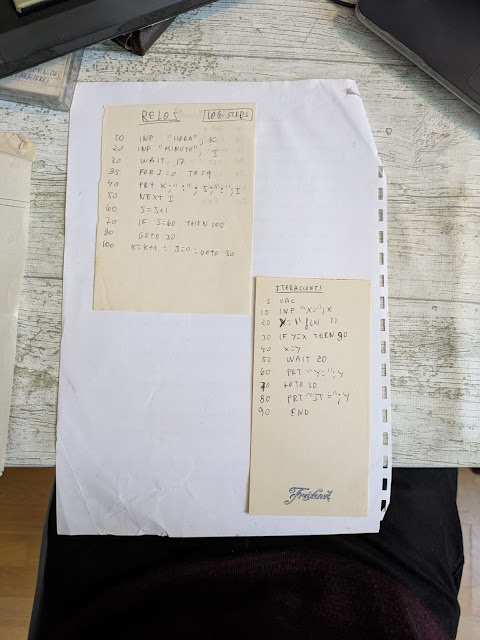 RELOJ
106 STEPS
10 INP "HORA", K
20 INP "MINUTO", J
30 WAIT 17
35 FOR I=0 TO 59
40 PRT K;":";J;":";I
50 NEXT I
60 J=J+1
70 IF J=60 THEN 100
80 GOTO 30
100 K=K+1 : J=0 : GOTO 30
ITERACIONES
5 VAC
10 INP "X=",X
20 Y= "f(x)"
30 IF Y=X THEN 80
40 X=Y
50 WAIT 20
60 PRT "Y=";Y
70 GOTO 30
80 PRT "ST=";Y
90 END
Freixenet